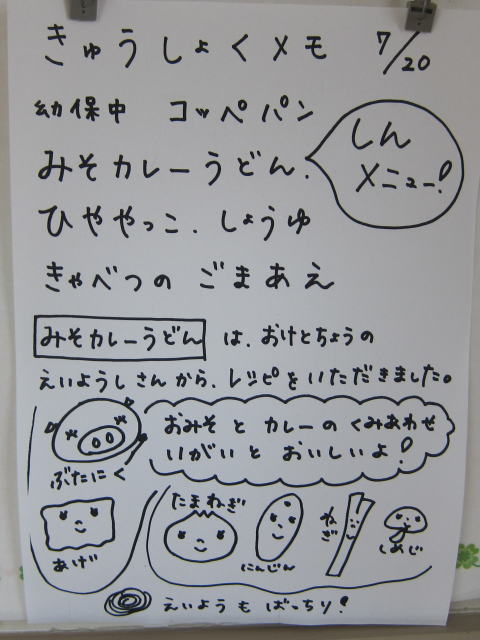 きゅうしょくメモ 7/20
幼保中 コッペパン
みそカレーうどん.
しん
メニュー!
ひややっこ.しょうゆ
きゃべつの ごまあえ
みそカレーうどん は、おけとちょうの
えいようしさんから、レシピをいただきました。
おみそ と カレーの くみあわせ
いがいと おいしいよ!
ぶたにく
あげ
たまねぎ
にんじん
ねぎ
しめじ
えいようも ばっちり!